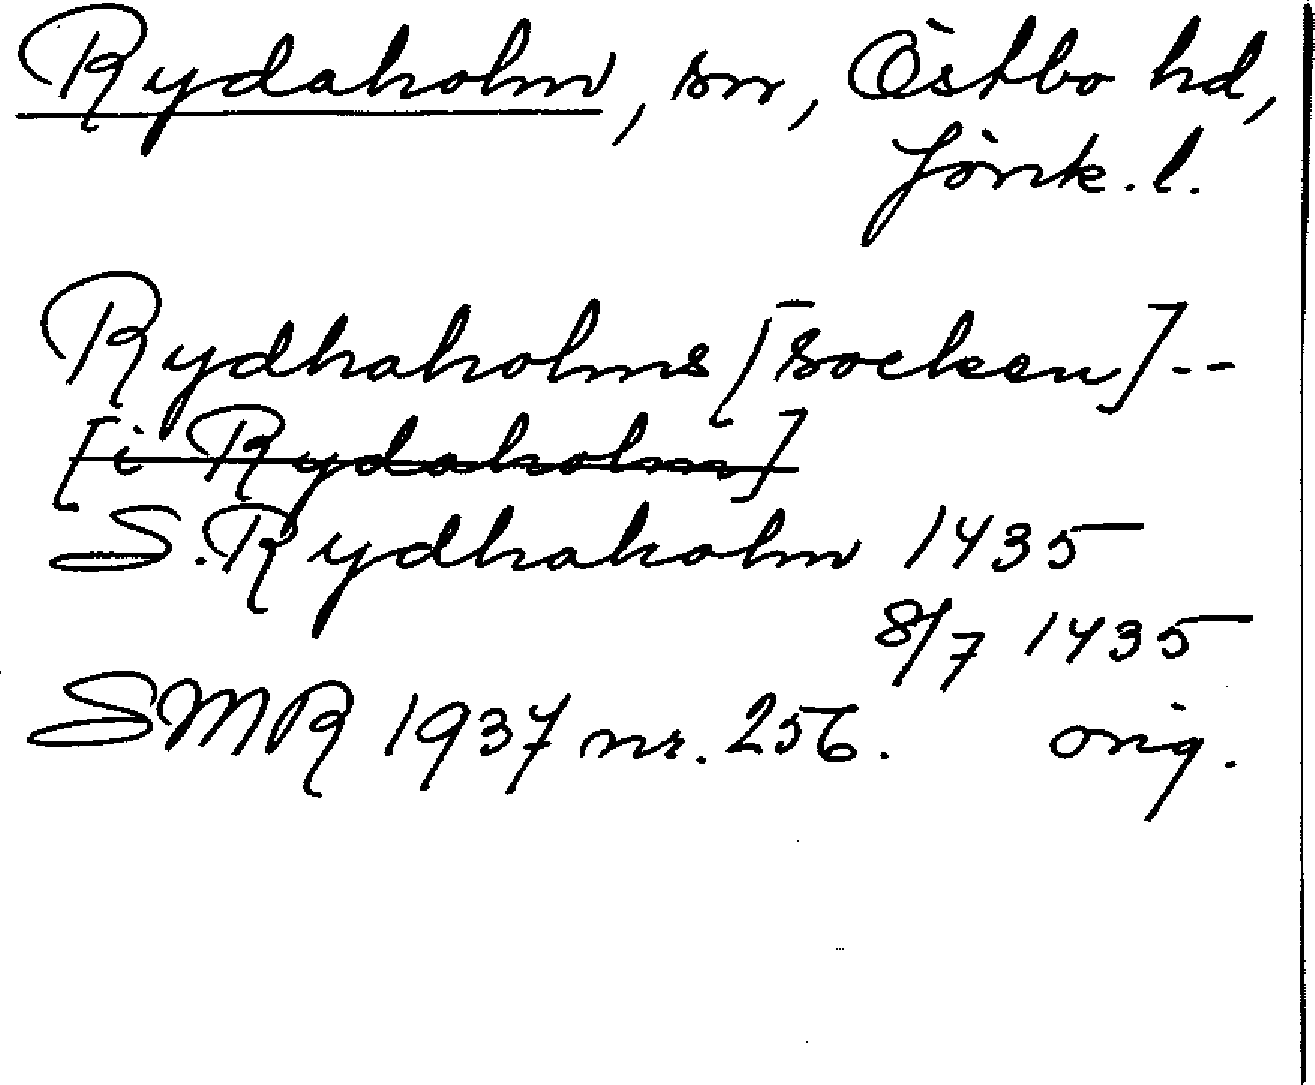 Rydaholm, sn, Östbo hd,
Jönk. l.
Rydhaholms [socken] --
[i Rydaholm]
S. Rydhaholm 1435
8/7 1435
SMR 1937 nr. 256. orig.